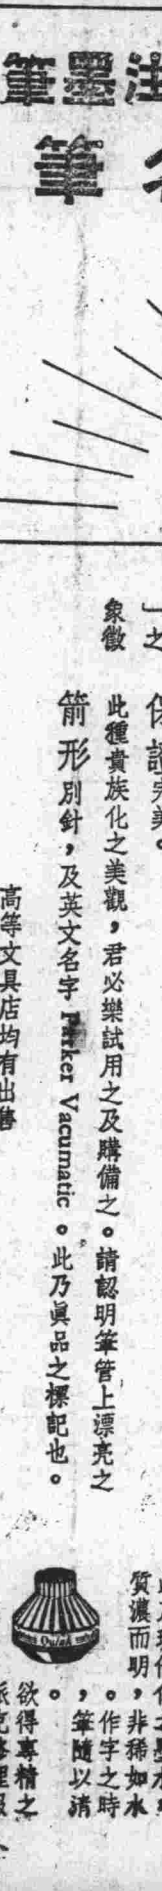 墨筆
筆
」之
象徵
保證完美。
此種貴族化之美觀，君必樂試用之及購備之。請認明筆管上漂亮之
箭形別針，及英文名字 Parker Vacumatic。此乃眞品之標記也。
高等文具店均有出售
質濃而明，非稀如水
。作字之時
，筆隨以清
。
Quink
欲得專精之